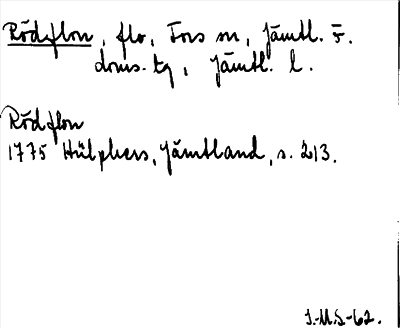 Rödflon, flo, Fors sn, Jämtl. ö.
doms. tg, Jämtl. l.
Rödflon
1775 Hülphers, Jämtland, s. 213.
J.-M.S-62.